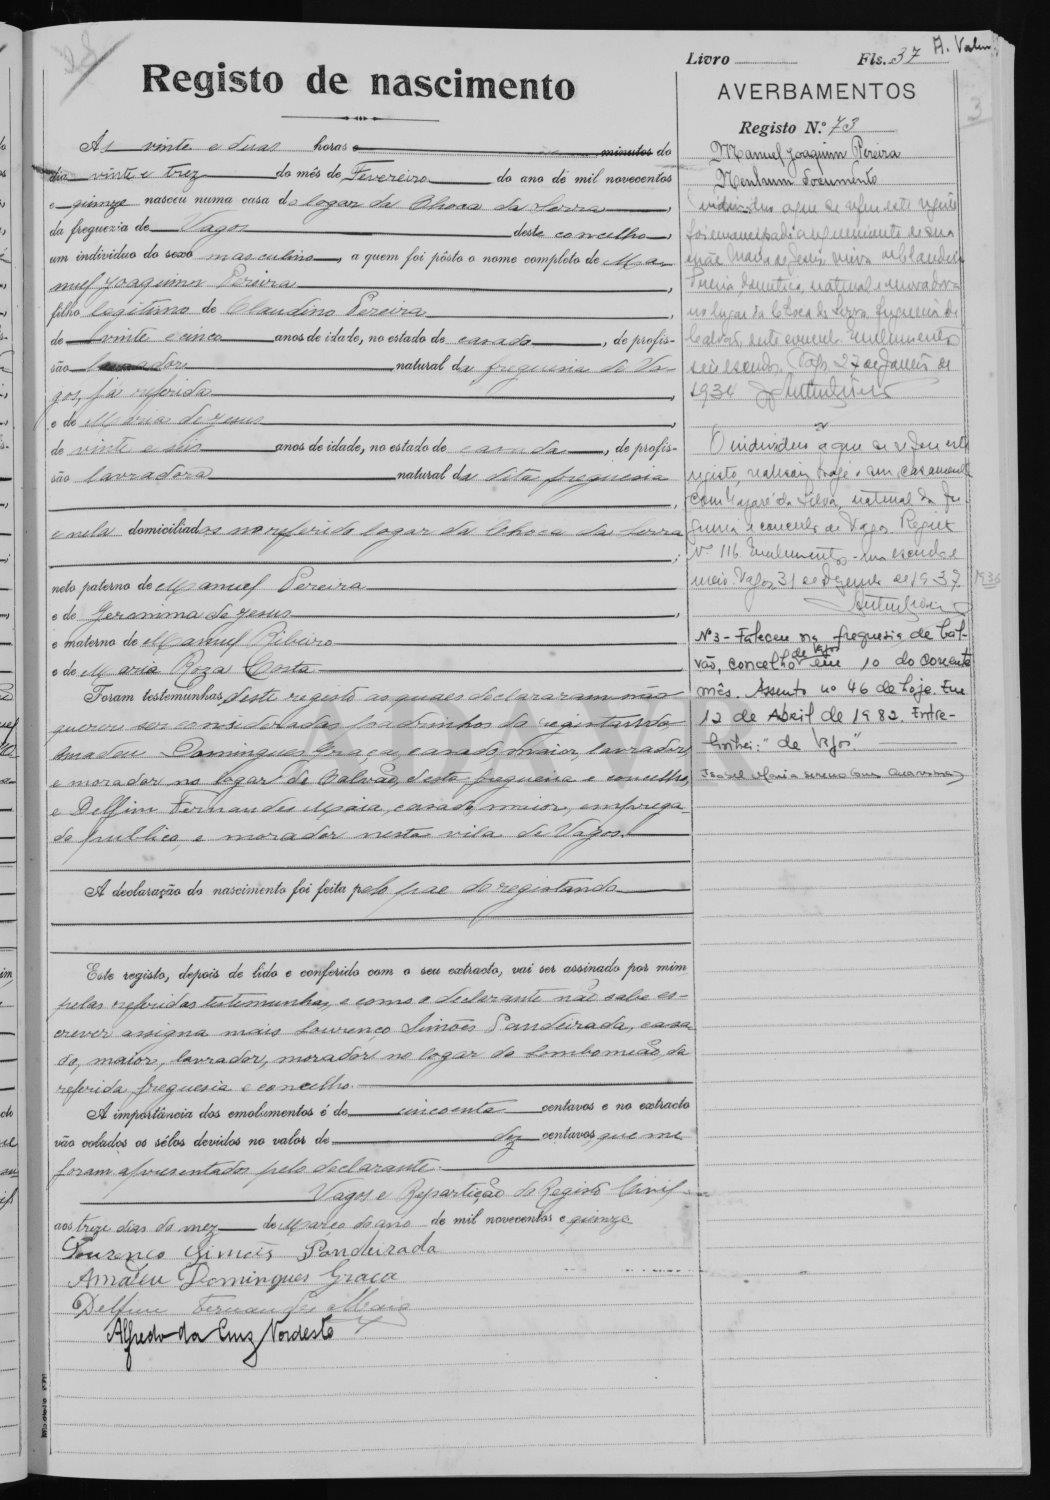 Registo de nascimento
Às vinte e duas horas e minutos do
dia vinte e trez do mês de Fevereiro do ano de mil novecentos
e quinze nasceu numa casa do logar da Choca da Serra,
da freguezia de Vagos deste concelho,
um individuo do sexo masculino, a quem foi pôsto o nome completo de Ma-
nuel Joaquim Pereira,
filho legitimo de Claudino Pereira,
de vinte e cinco anos de idade, no estado de casado, de profis-
são lavrador natural da freguesia de Va-
gos, já referida,
e de Maria de Jesus,
de vinte e seis anos de idade, no estado de casada, de profis-
são lavradora natural da dita freguesia
e nela domiciliados no referido logar da Choca da Serra
;
neto paterno de Manuel Pereira
e de Jeronima de Jesus,
e materno de Manuel Ribeiro
e de Maria Roza Costa
Foram testemunhas deste registo as quaes declararam não
querer ser consideradas padrinhos do registando,
Amadeu Domingues Graça, casado, maior, lavrador,
e morador no logar de Calvão, desta freguesia e concelho,
e Delfim Fernandes Maia, casado, maior, emprega-
do publico, e morador nesta vila de Vagos.
A declaração do nascimento foi feita pelo pae do registando
Este registo, depois de lido e conferido com o seu extracto, vai ser assinado por mim
pelas referidas testemunhas, e como o declarante não sabe es-
crever assigna mais Lourenço Simões Pandeirada, casa-
do, maior, lavrador, morador no logar do Lombomeão, da
referida freguesia e concelho.
A importância dos emolumentos é de cincoenta centavos e no extracto
vão colados os sêlos devidos no valor de dez centavos, que me
foram apresentados pelo declarante.
Vagos e Repartição do Registo Civil
aos treze dias do mez de Março do ano de mil novecentos e quinze
Lourenço Simões Pandeirada
Amadeu Domingues Graça
Delfim Fernandes Maia
Alfredo da Cruz Nordesto
Livro Fls. 37
AVERBAMENTOS
3
Registo N.º 73
Manuel Joaquim Pereira
Nenhum documento
O individuo a que se refere este registo
foi emancipado a requerimento de sua
mãe Maria de Jesus viuva de Claudino
Pereira, domestica, natural e moradora
no lugar da Choca da Serra, freguesia de
Calvão, deste concelho. Emolumentos
seis escudos. Vagos 27 de Janeiro de
1934
O individuo a que se refere este
registo, realisou hoje o seu casamento
com Nazaré da Silva, natural da fre-
guesia e concelho de Vagos. Registo
Nº 116. Emolumentos - um escudo e
meio. Vagos 31 de Dezembro de 1937
Nº 3 - Faleceu na freguesia de Cal-
vão, concelho de Vagos em 10 do corrente
mês. Assento nº 46 de hoje. Em
12 de Abril de 1982. Entre-
linhei: "de Vagos".